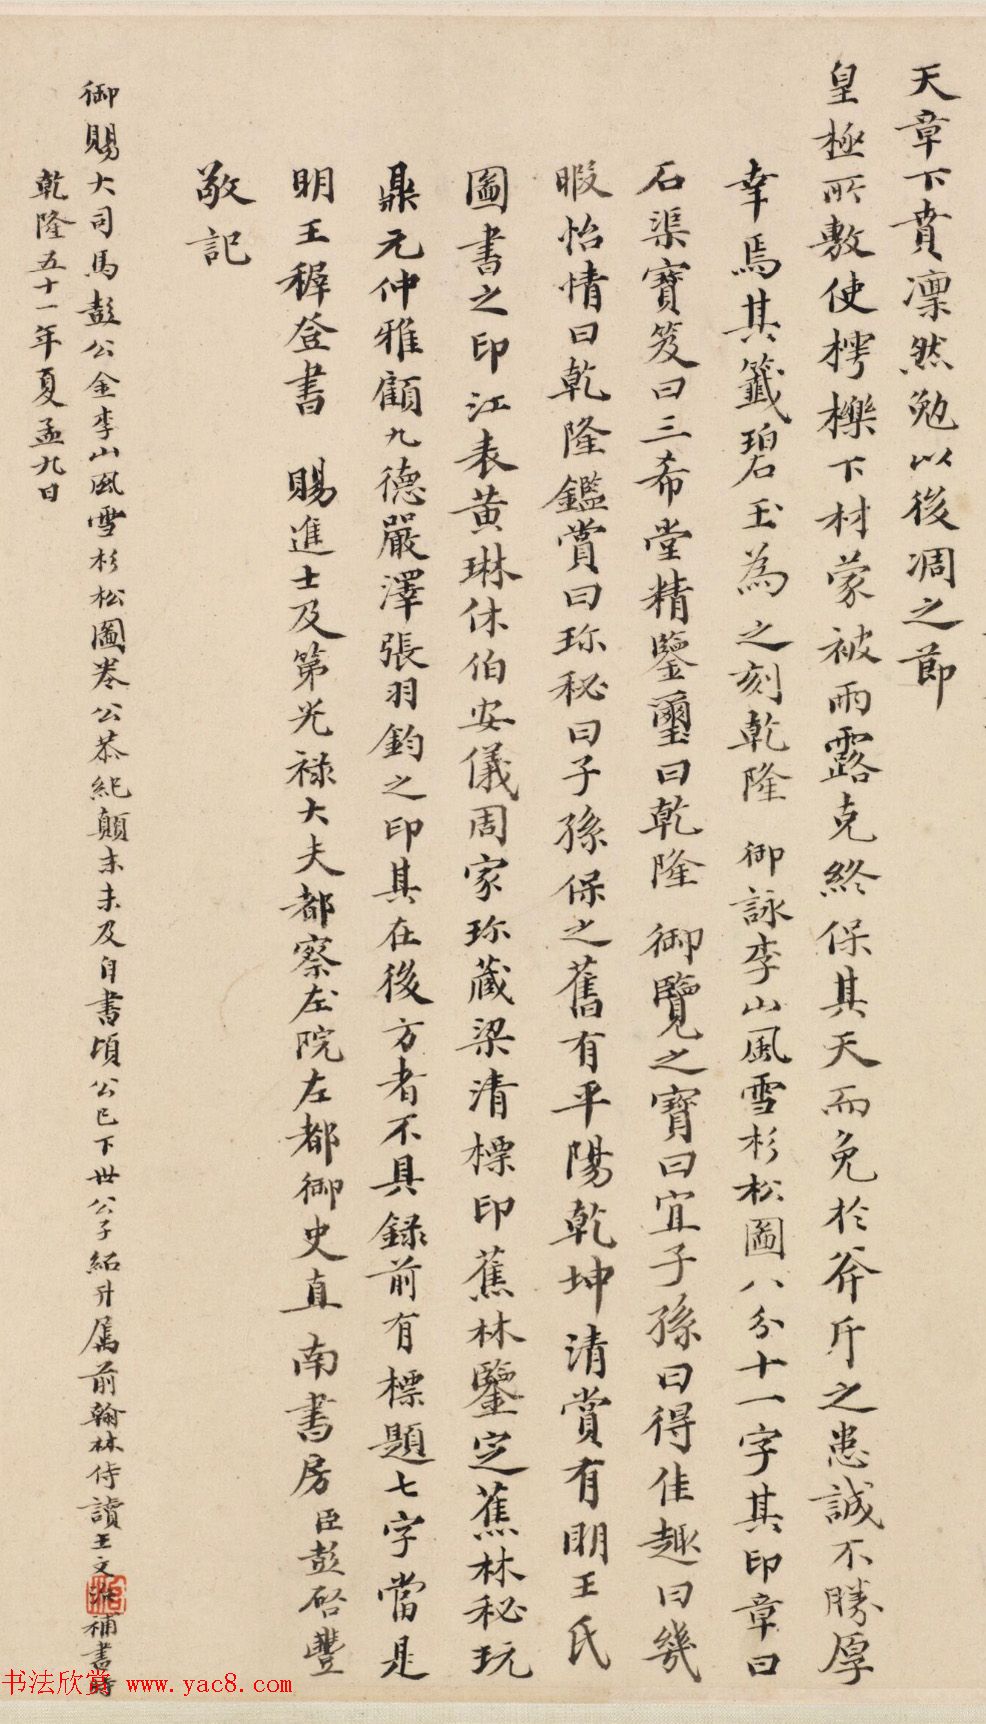 天章下賁凜然勉以後凋之節
皇極所敷使樗櫟下材蒙被雨露克終保其天而免於斧斤之患誠不勝厚
幸焉其籤碧玉為之刻乾隆 御詠李山風雪杉松圖八分十一字其印章曰
石渠寶笈曰三希堂精鑒璽曰乾隆御覽之寶曰宜子孫曰得佳趣曰幾
暇怡情曰乾隆鑑賞曰珎秘曰子孫保之舊有平陽乾坤清賞有明王氏
圖書之印江表黄琳休伯安儀周家珎藏梁清標印蕉林鑒定蕉林秘玩
鼎元仲雅顧九德嚴澤張羽鈞之印其在後方者不具録前有標題七字當是
明王穉登書 賜進士及第光禄大夫都察左院左都御史直南書房臣彭啓豐
敬記
御賜大司馬彭公金李山風雪杉松圖卷公恭紀顛末未及自書頃公已下世公子紹升屬前翰林侍讀王文治補書時
乾隆五十一年夏孟九日
书法欣赏 www.yac8.com